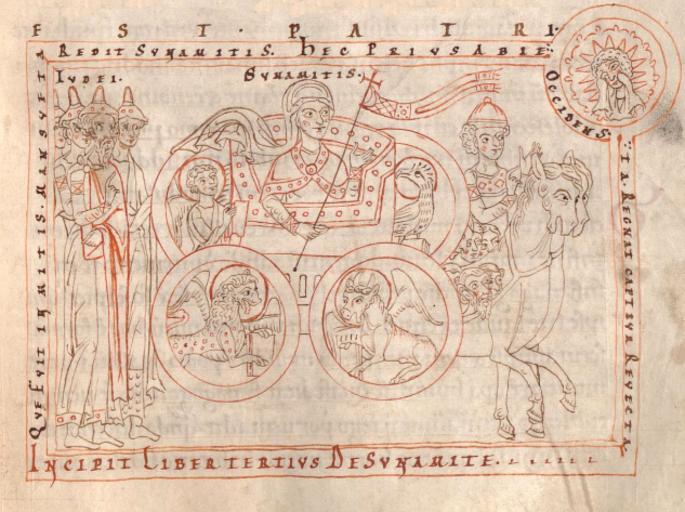 EST·PATRI·
REDIT SUNAMITIS. HEC PRIUS ABIE
IUDEI.
SUNAMITIS.
OCCIDENS.
QUE FUIT INMITIS. MANSUETA
TA. REGNAT CAPTIVA REVECTA
INCIPIT LIBER TERTIUS DE SUNAMITE.